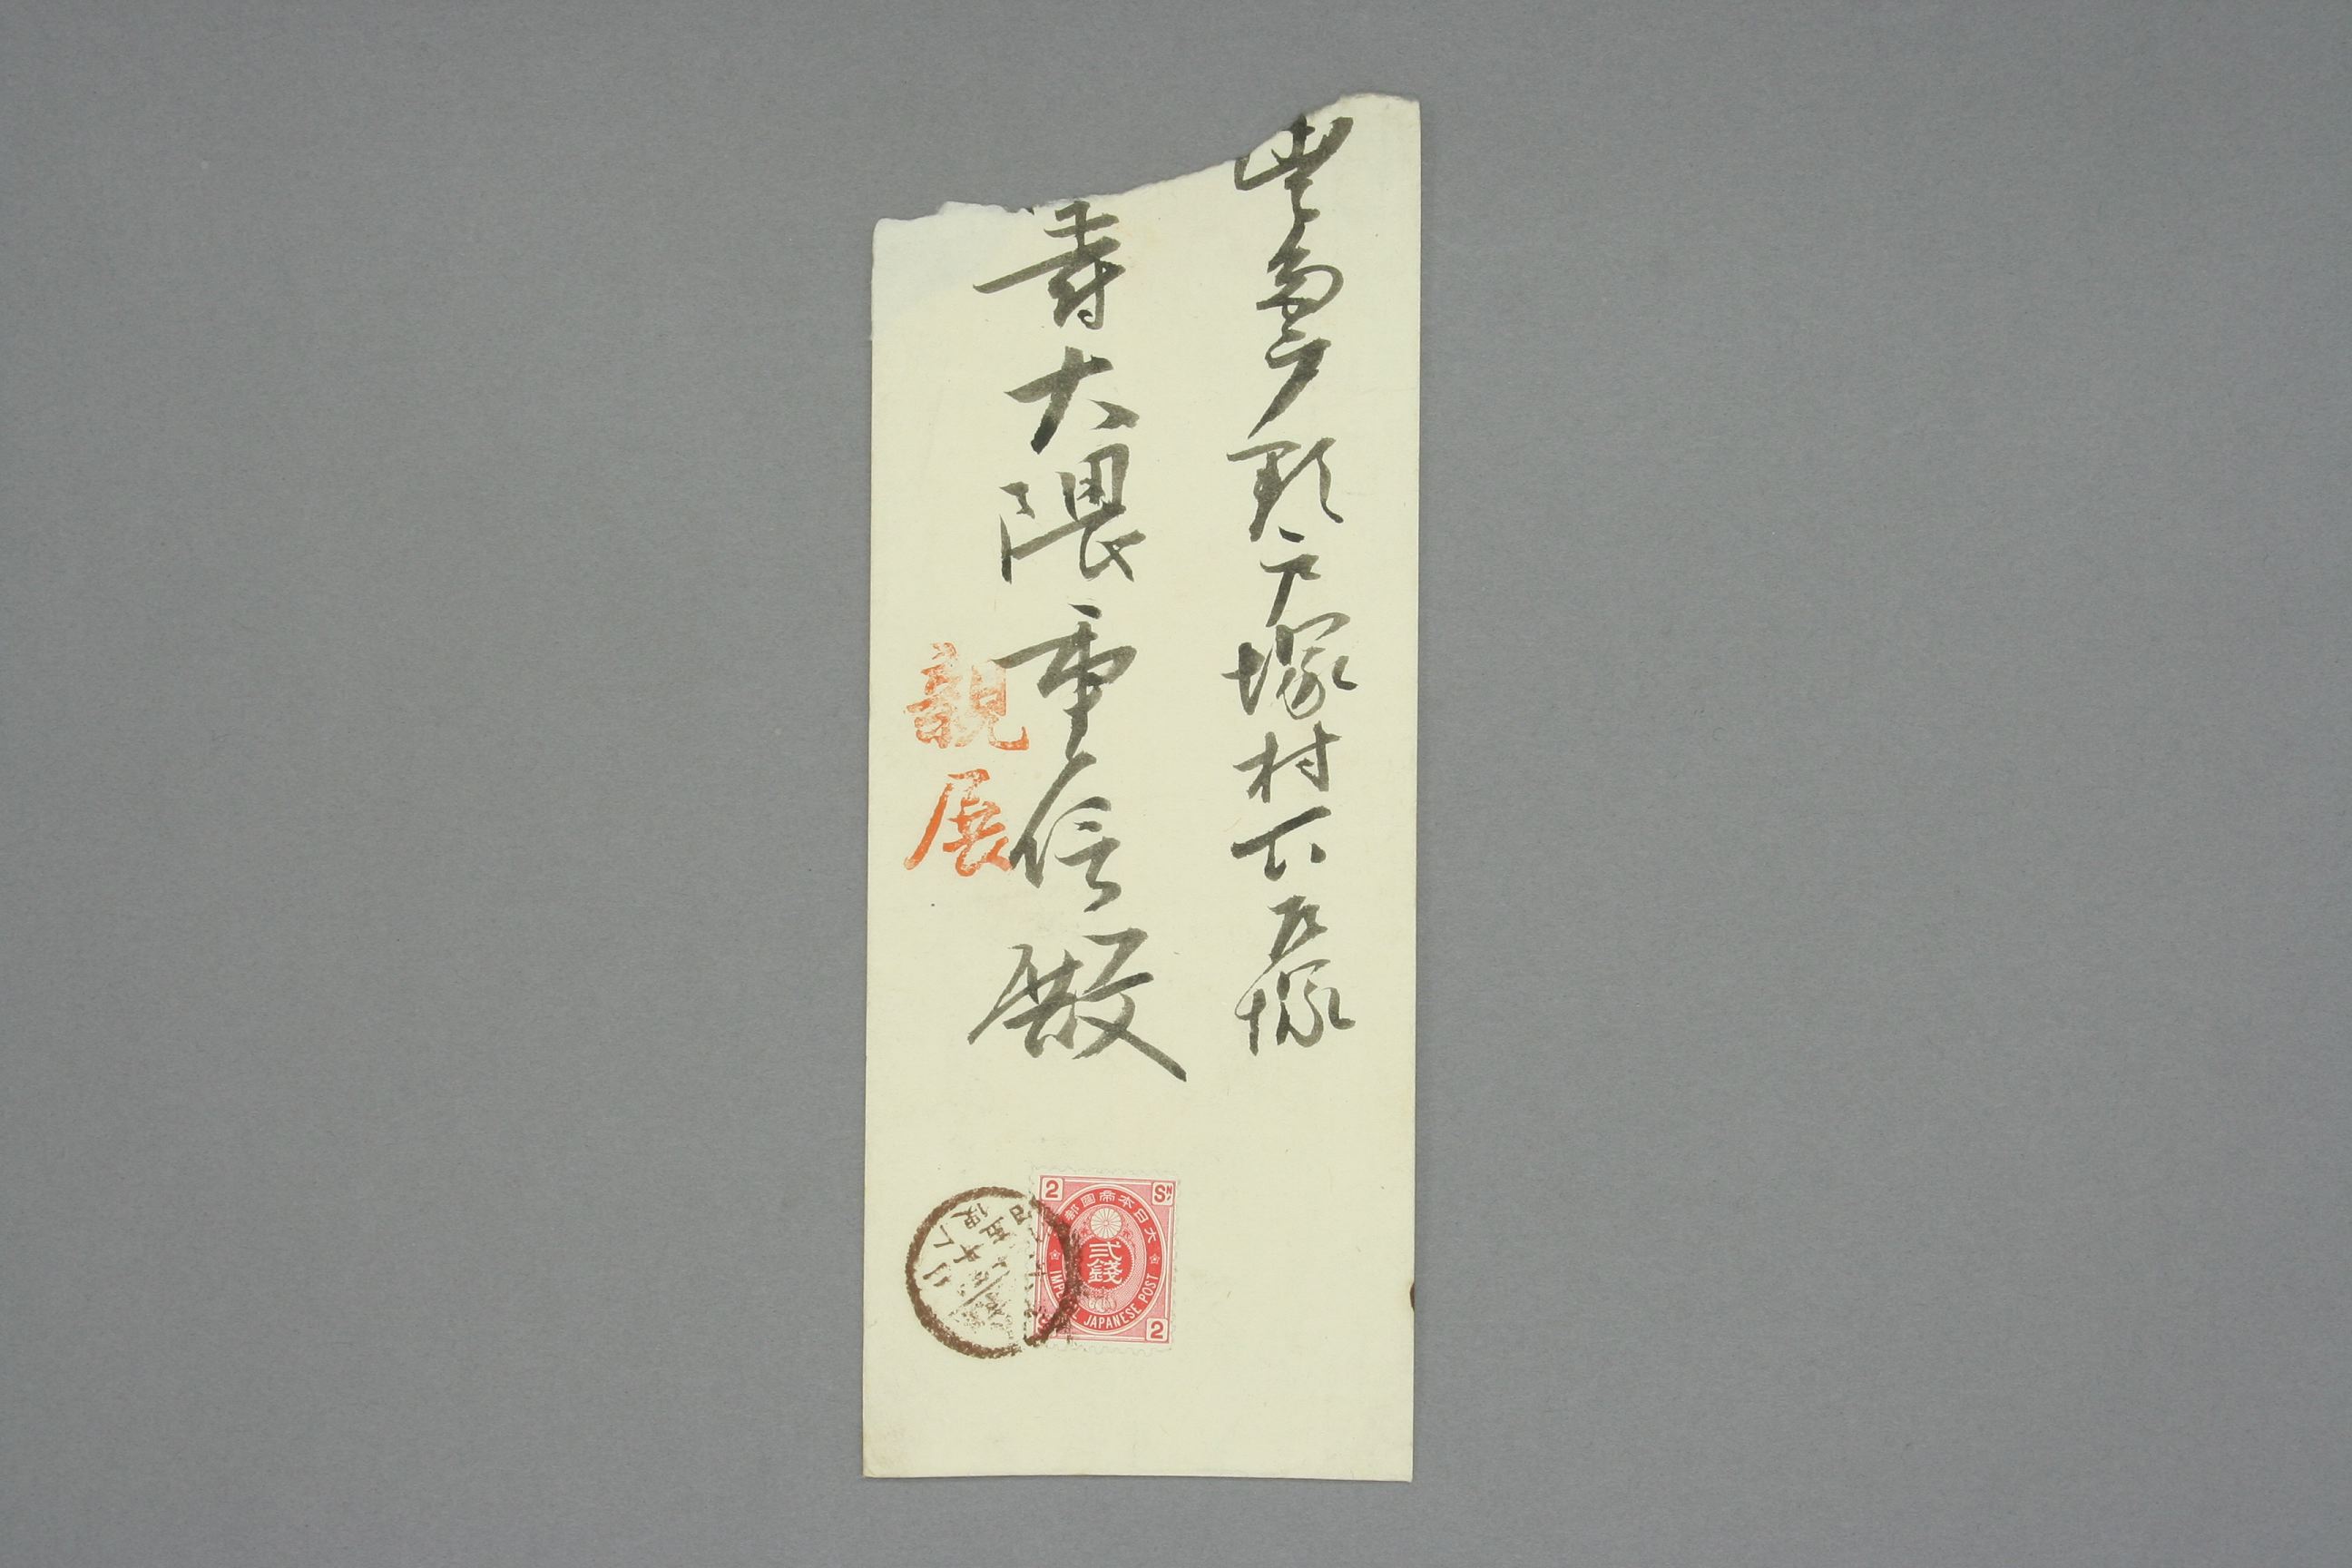 豊多摩郡戸塚村下戸塚
爵大隈重信殿
親展
2 SN
大日本帝國郵
弐錢
IMPERIAL JAPANESE POST
2